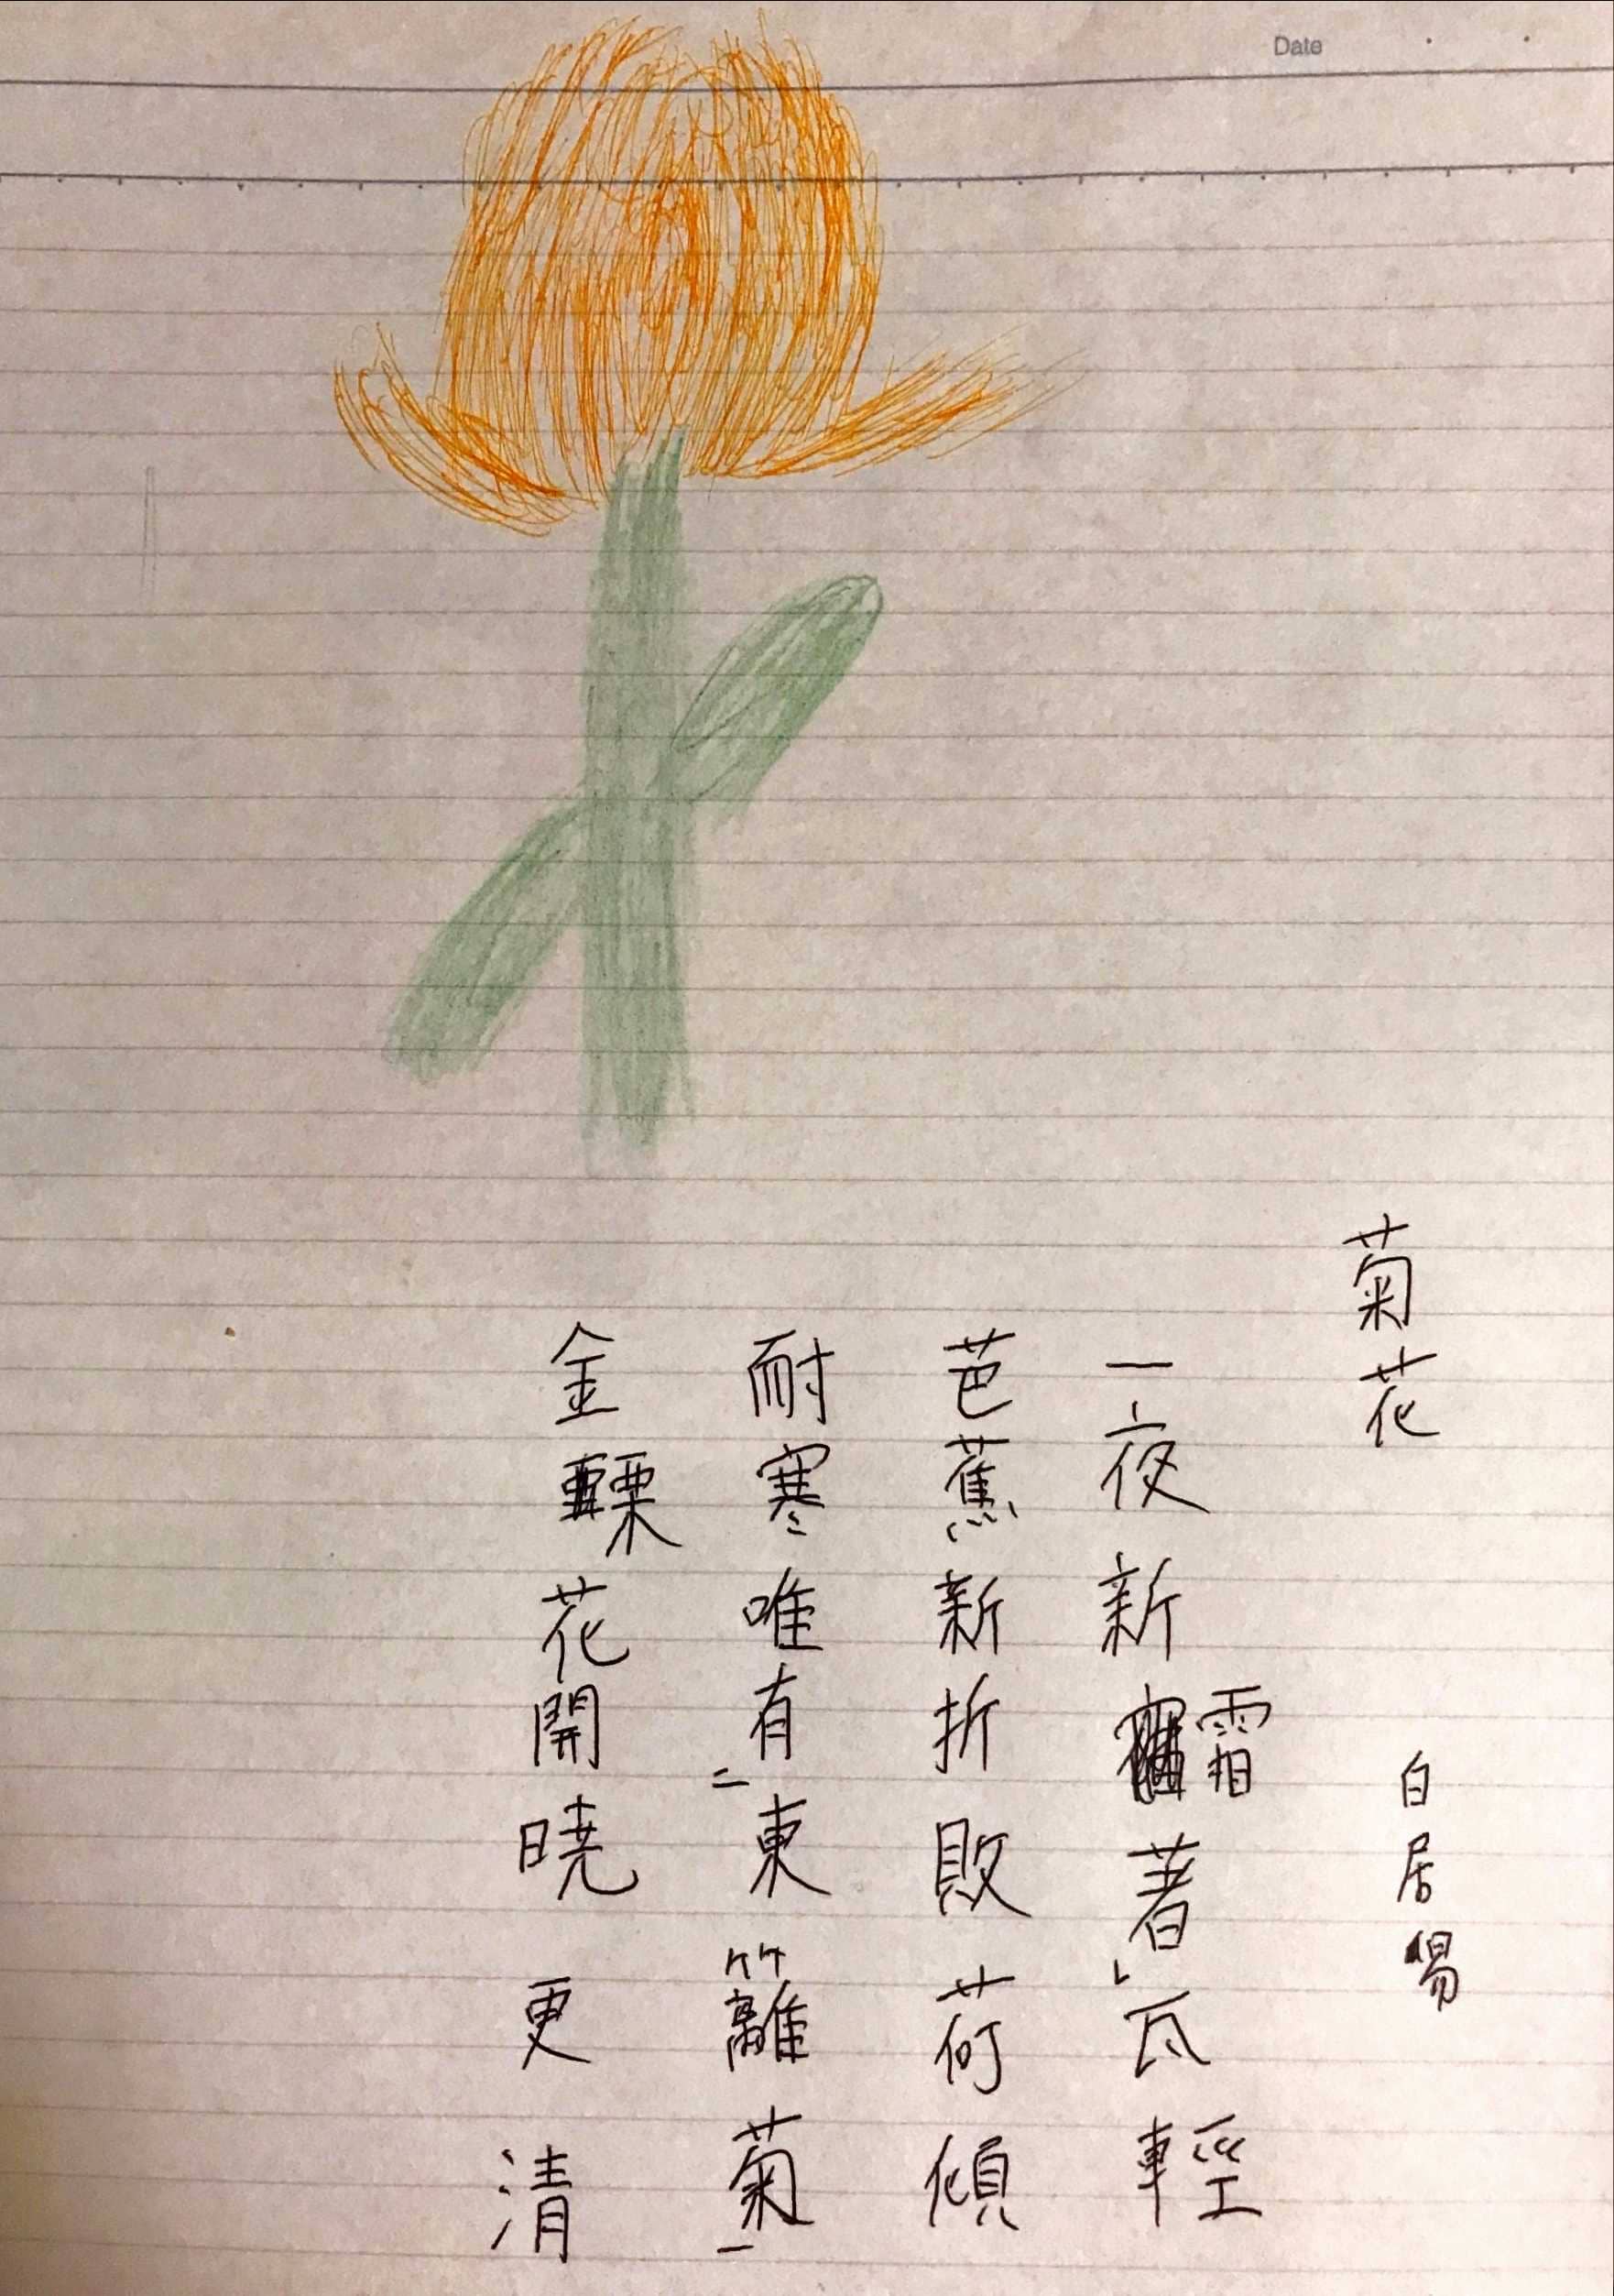 Date
菊花
白居易
一夜新霜著レ瓦輕
芭蕉新折敗荷傾
耐寒唯有二東籬菊一
金粟花開暁更清